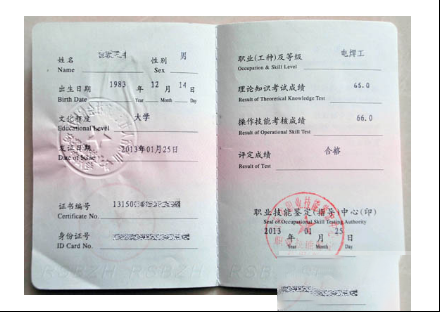 姓名 性别 男
Name Sex
出生日期 1983 年 12 月 14 日
Birth Date Year Month Day
文化程度 大学
Educational Level
发证日期 2013年01月25日
Date of Issue
证书编号 13150
Certificate No.
身份证号
ID Card No.
职业(工种)及等级 电焊工
Occupation & Skill Level
理论知识考试成绩
Result of Theoretical Knowledge Test
操作技能考核成绩 66.0
Result of Operational Skill Test
评定成绩 合格
Result of Test
职业技能鉴定(指导)中心(印)
Seal of Occupational Skill Testing Authority
2013 年 01 月 25 日
Year Month Day